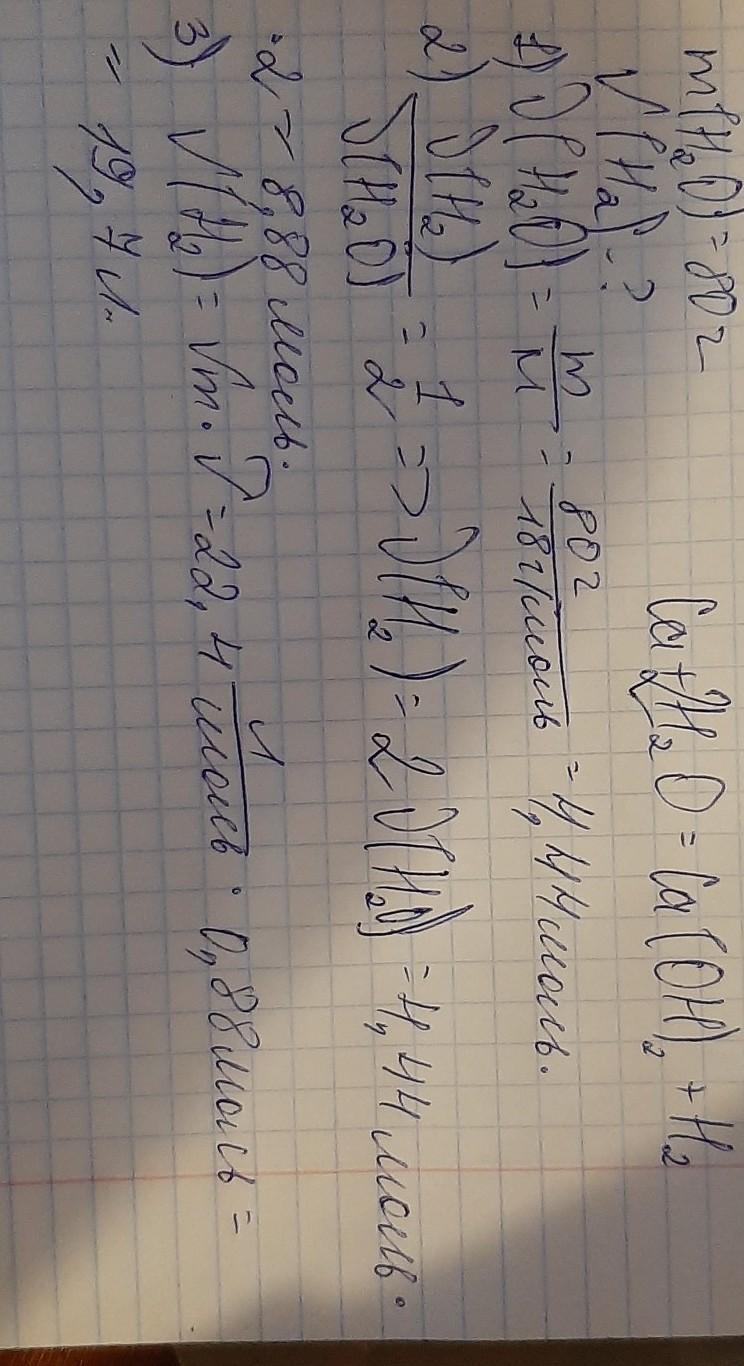 m(H₂O)=80г
V(H₂)-?
Ca+2H₂O=Ca(OH)₂+H₂
1) ν(H₂O) = m/M = 80г/18г/моль = 4,44моль.
2) ν(H₂)/ν(H₂O) = 1/2 => ν(H₂) = 2ν(H₂O) = 4,44 моль·
·2 = 8,88 моль.
3) V(H₂) = Vm·ν = 22,4 л/моль · 0,88моль =
= 19,7л.